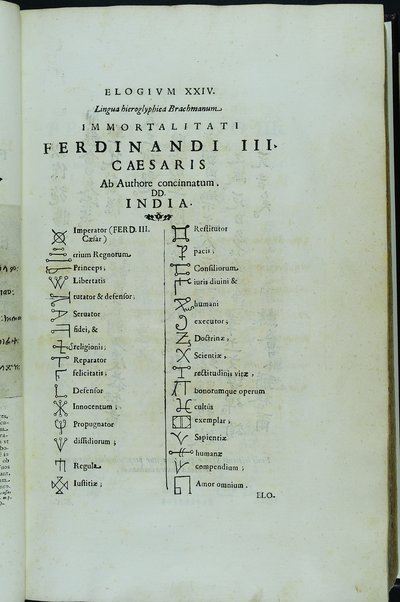 ELOGIVM XXIV.
Lingua hieroglyphica Brachmanum
IMMORTALITATI
FERDINANDI III.
CAESARIS
Ab Authore concinnatum.
DD.
INDIA.
Imperator (FERD. III.
Cæsar)
trium Regnorum
Princeps;
Libertatis
tutator & defensor;
Seruator
fidei, &
religionis;
Reparator
felicitatis;
Defensor
Innocentum;
Propugnator
dissidiorum;
Regula
Iustitiæ;
Restitutor
pacis;
Consiliorum
iuris diuini &
humani
executor;
Doctrinæ,
Scientiæ,
rectitudinis vitæ,
bonorumque operum
cultûs
exemplar;
Sapientiæ
humanæ
compendium;
Amor omnium.
ELO-